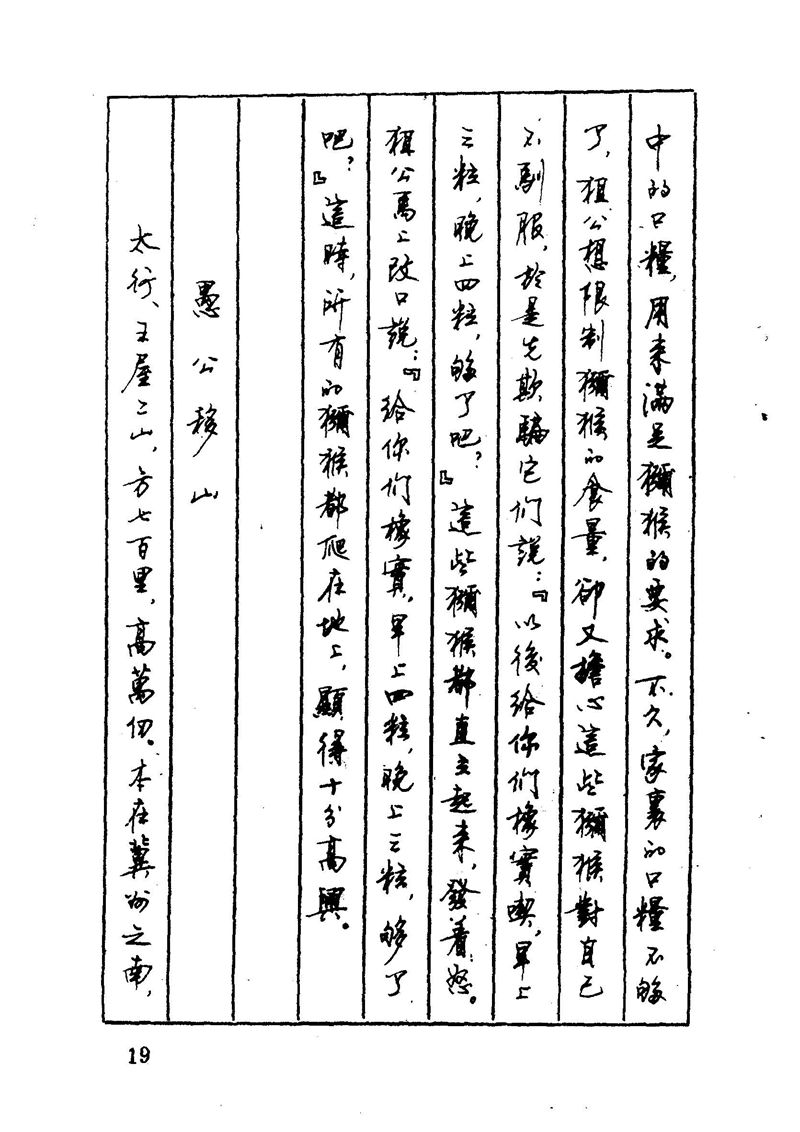 中的口糧，用來滿足獼猴的要求。不久，家裏的口糧不够
了，狙公想限制獼猴的食量，卻又擔心這些獼猴對自己
不馴服，於是先欺騙它們說：『以後給你們橡實喫，早上
三粒，晚上四粒，够了吧？』這些獼猴都直立起來，發着怒。
狙公馬上改口說：『給你們橡實，早上四粒，晚上三粒，够了
吧？』這時，所有的獼猴都爬在地上，顯得十分高興。
愚公移山
太行、王屋二山，方七百里，高萬仞。本在冀州之南，
19